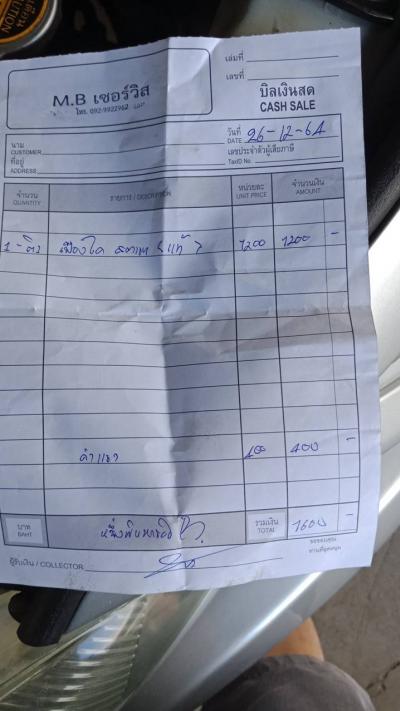 เล่มที่
เลขที่
M.B เซอร์วิส
โทร. 092-9922962
บิลเงินสด
CASH SALE
วันที่ DATE 26-12-64
นาม CUSTOMER
เลขประจำตัวผู้เสียภาษี TaxID No.
ที่อยู่ ADDRESS
จำนวน QUANTITY รายการ / DESCRIPTION หน่วยละ UNIT PRICE จำนวนเงิน AMOUNT
1 เฟืองไดสตาท (แท้) 1200 1200 -
ค่าแรง 400 400 -
บาท BAHT หนึ่งพันหกร้อย รวมเงิน TOTAL 1600 -
ผู้รับเงิน / COLLECTOR
ขอขอบคุณ
ท่านที่อุดหนุน